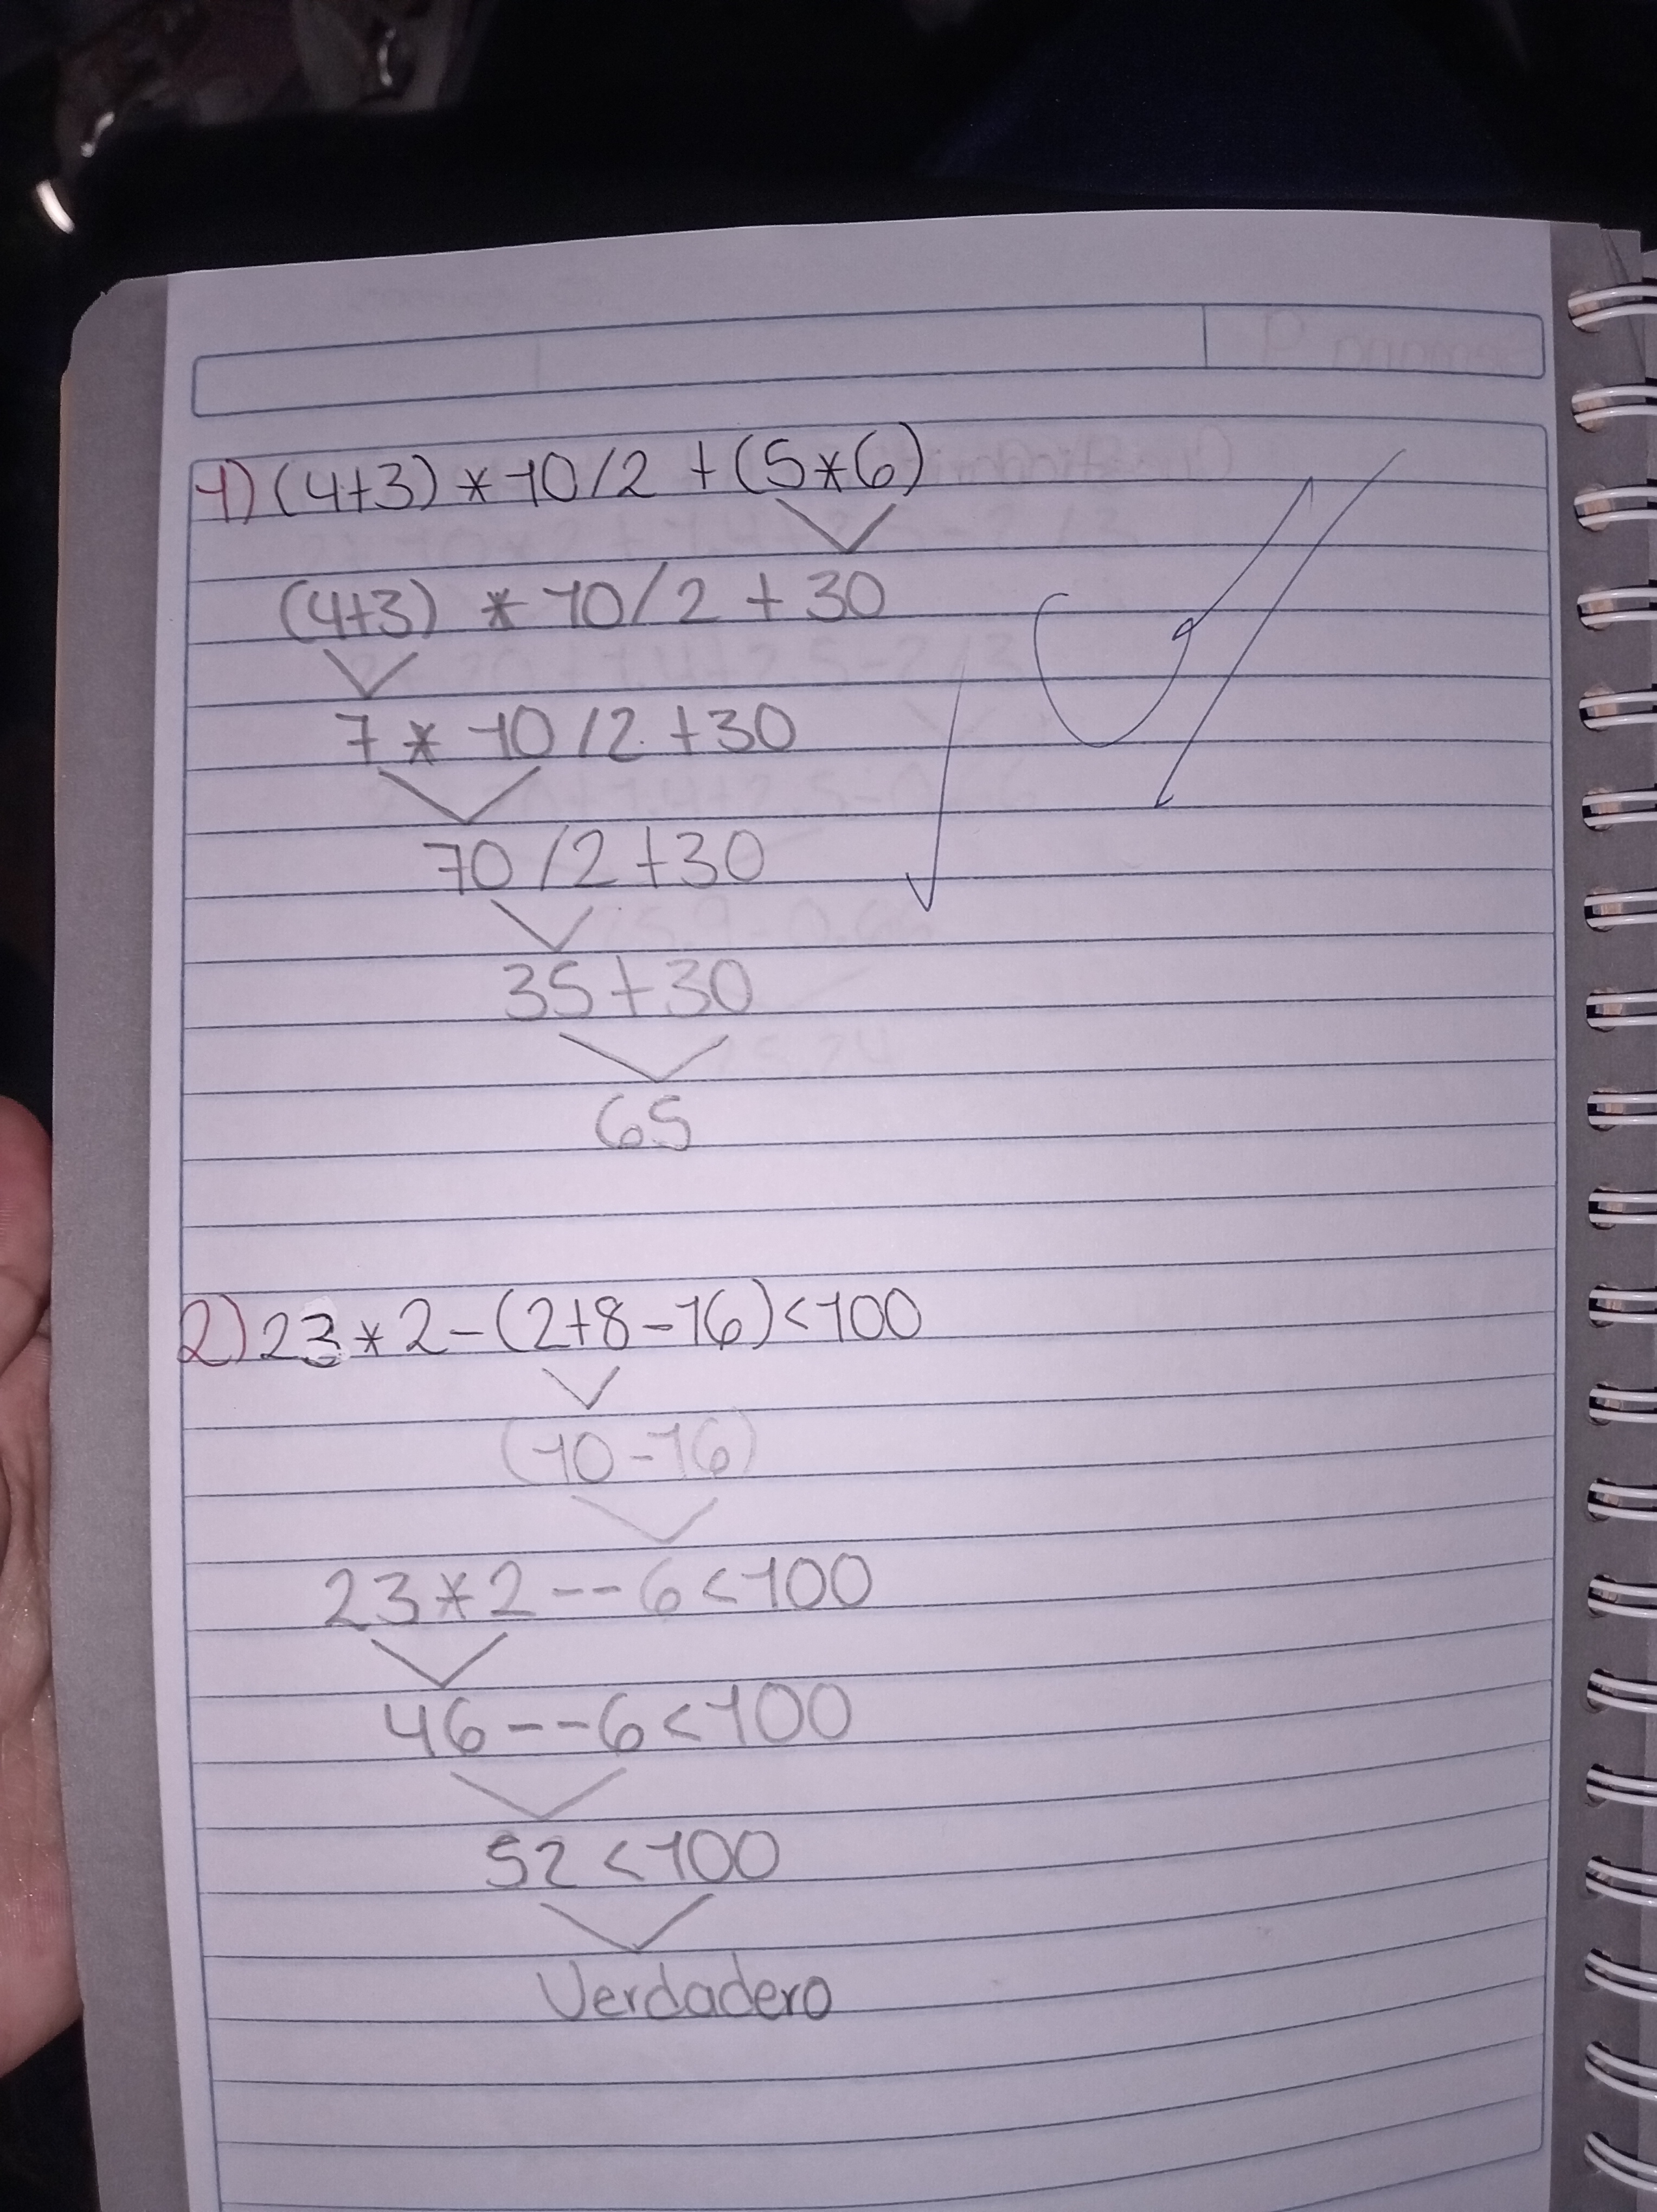 1) (4+3) * 10/2 + (5*6)
(4+3) * 10/2 + 30
7 * 10/2 + 30
70/2 + 30
35 + 30
65
2) 23 * 2 - (2+8-16) < 100
(10-16)
23 * 2 - - 6 < 100
46 - - 6 < 100
52 < 100
Verdadero